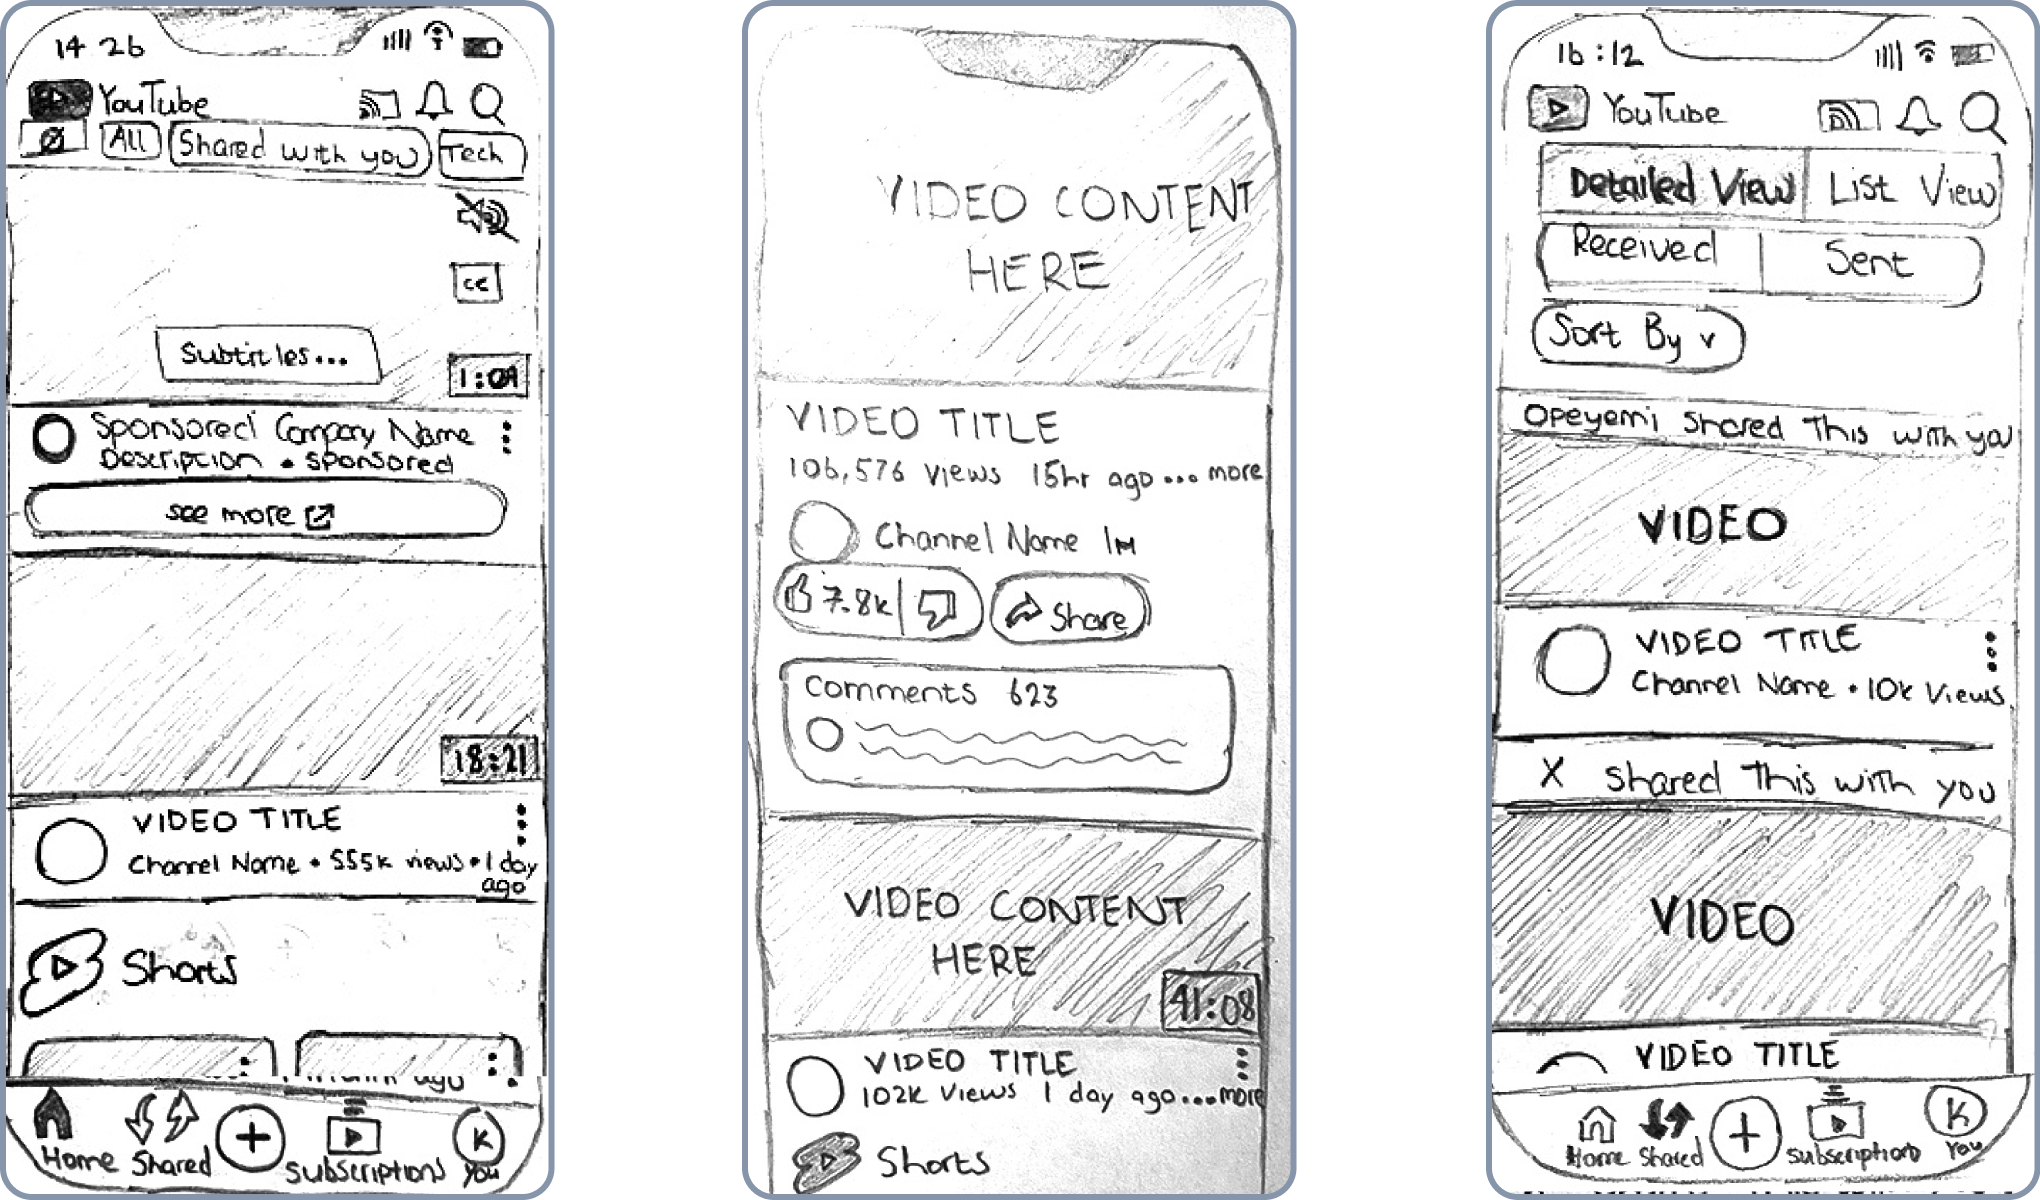 14 26
YouTube
All Shared with you Tech
cc
Subtitles...
1:09
Sponsored Company Name
Description • sponsored
see more
18:21
VIDEO TITLE
Channel Name • 555k views • 1 day
ago
Shorts
Home Shared + Subscriptions K You
VIDEO CONTENT
HERE
VIDEO TITLE
106,576 views 15hr ago ... more
Channel Name 1M
7.8k Share
Comments 623
VIDEO CONTENT
HERE
41:08
VIDEO TITLE
102K Views 1 day ago...more
Shorts
16:12
YouTube
Detailed View List View
Received Sent
Sort By v
Opeyemi Shared This with you
VIDEO
VIDEO TITLE
Channel Name • 10k Views
X shared This with you
VIDEO
VIDEO TITLE
Home Shared + Subscriptions K You